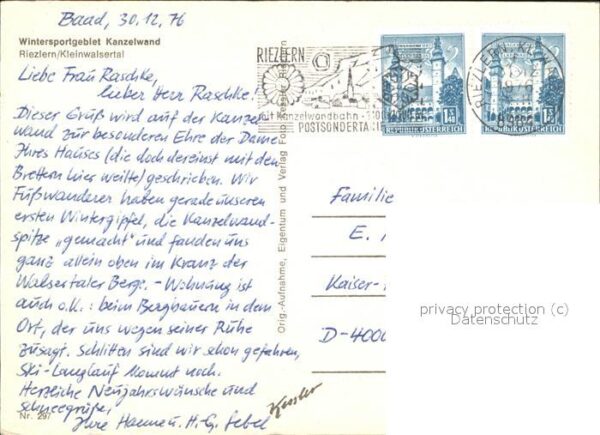 Baad, 30.12.76
Wintersportgebiet Kanzelwand
Riezlern/Kleinwalsertal
Liebe Frau Raschke,
lieber Herr Raschke.
Dieser Gruß wird auf der Kanzel-
wand zur besonderen Ehre der Dame
Ihres Hauses (die doch dereinst mit den
Brettern hier weilte) geschrieben. Wir
Fußwanderer haben gerade unseren
ersten Wintergipfel, die Kanzelwand-
spitze „gemacht" und fanden uns
ganz allein oben im Kranz der
Walsertaler Berge. - Wohnung ist
auch o.k.: beim Bergbauern in dem
Ort, der uns wegen seiner Ruhe
zusagt. Schlitten sind wir schon gefahren,
Ski-Langlauf kommt noch.
Herzliche Neujahrswünsche und
Schneegrüße,
Ihre Hanne u. H.-G.
Nr. 297
Kessler
Orig.-Aufnahme, Eigentum und Verlag Foto Kessler Riezlern
RIEZLERN
mit Kanzelwandbahn
POSTSONDERTA
REPUBLIK ÖSTERREICH
REPUBLIK ÖSTERREICH
RIEZLERN
Familie
E.
Kaiser-
D-4000
privacy protection (c)
Datenschutz